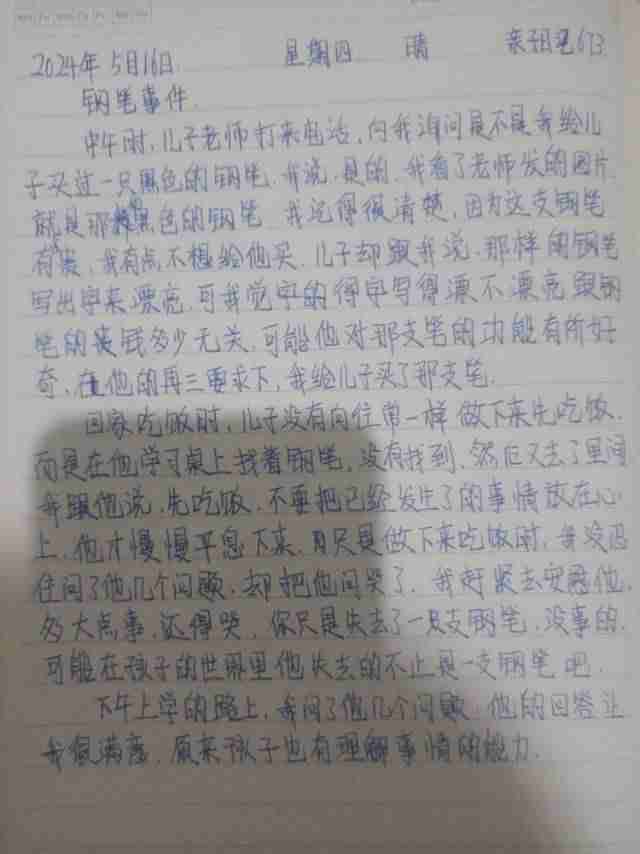 2024年5月16日 星期四 晴 亲子日记673
钢笔事件
中午时,儿子老师打来电话,向我询问是不是我给儿
子买过一只黑色的钢笔.我说.是的.我看了老师发的图片
就是那黑色的钢笔.我记得很清楚,因为这支钢笔
有贵,我有点不想给他买.儿子却跟我说.那样的钢笔
写出字来漂亮.可我觉字的得字写得漂不漂亮跟钢
笔的钱多少无关.可能他对那支笔的功能有所好
奇,在他的再三要求下,我给儿子买了那支笔.
回家吃饭时,儿子没有向往常一样做下来先吃饭.
而是在他学习桌上找着钢笔,没有找到.然后又去了里间
我跟他说.先吃饭.不要把已经发生了的事情放在心
上.他才慢慢平息下来.只是做下来吃饭时,我没忍
住问了他几个问题.却把他问哭了.我赶紧去安慰他.
多大点事,还得哭,你只是失去了一支钢笔.没事的.
可能在孩子的世界里他失去的不止是一支钢笔吧.
下午上学的路上,我问了他几个问题.他的回答让
我很满意,原来孩子也有理解事情的能力.